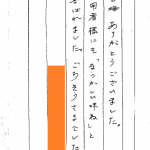 梅 ありがとうございました。
用者様にも「なつかしい味ね」と
ばれました。ごちそうさまでした